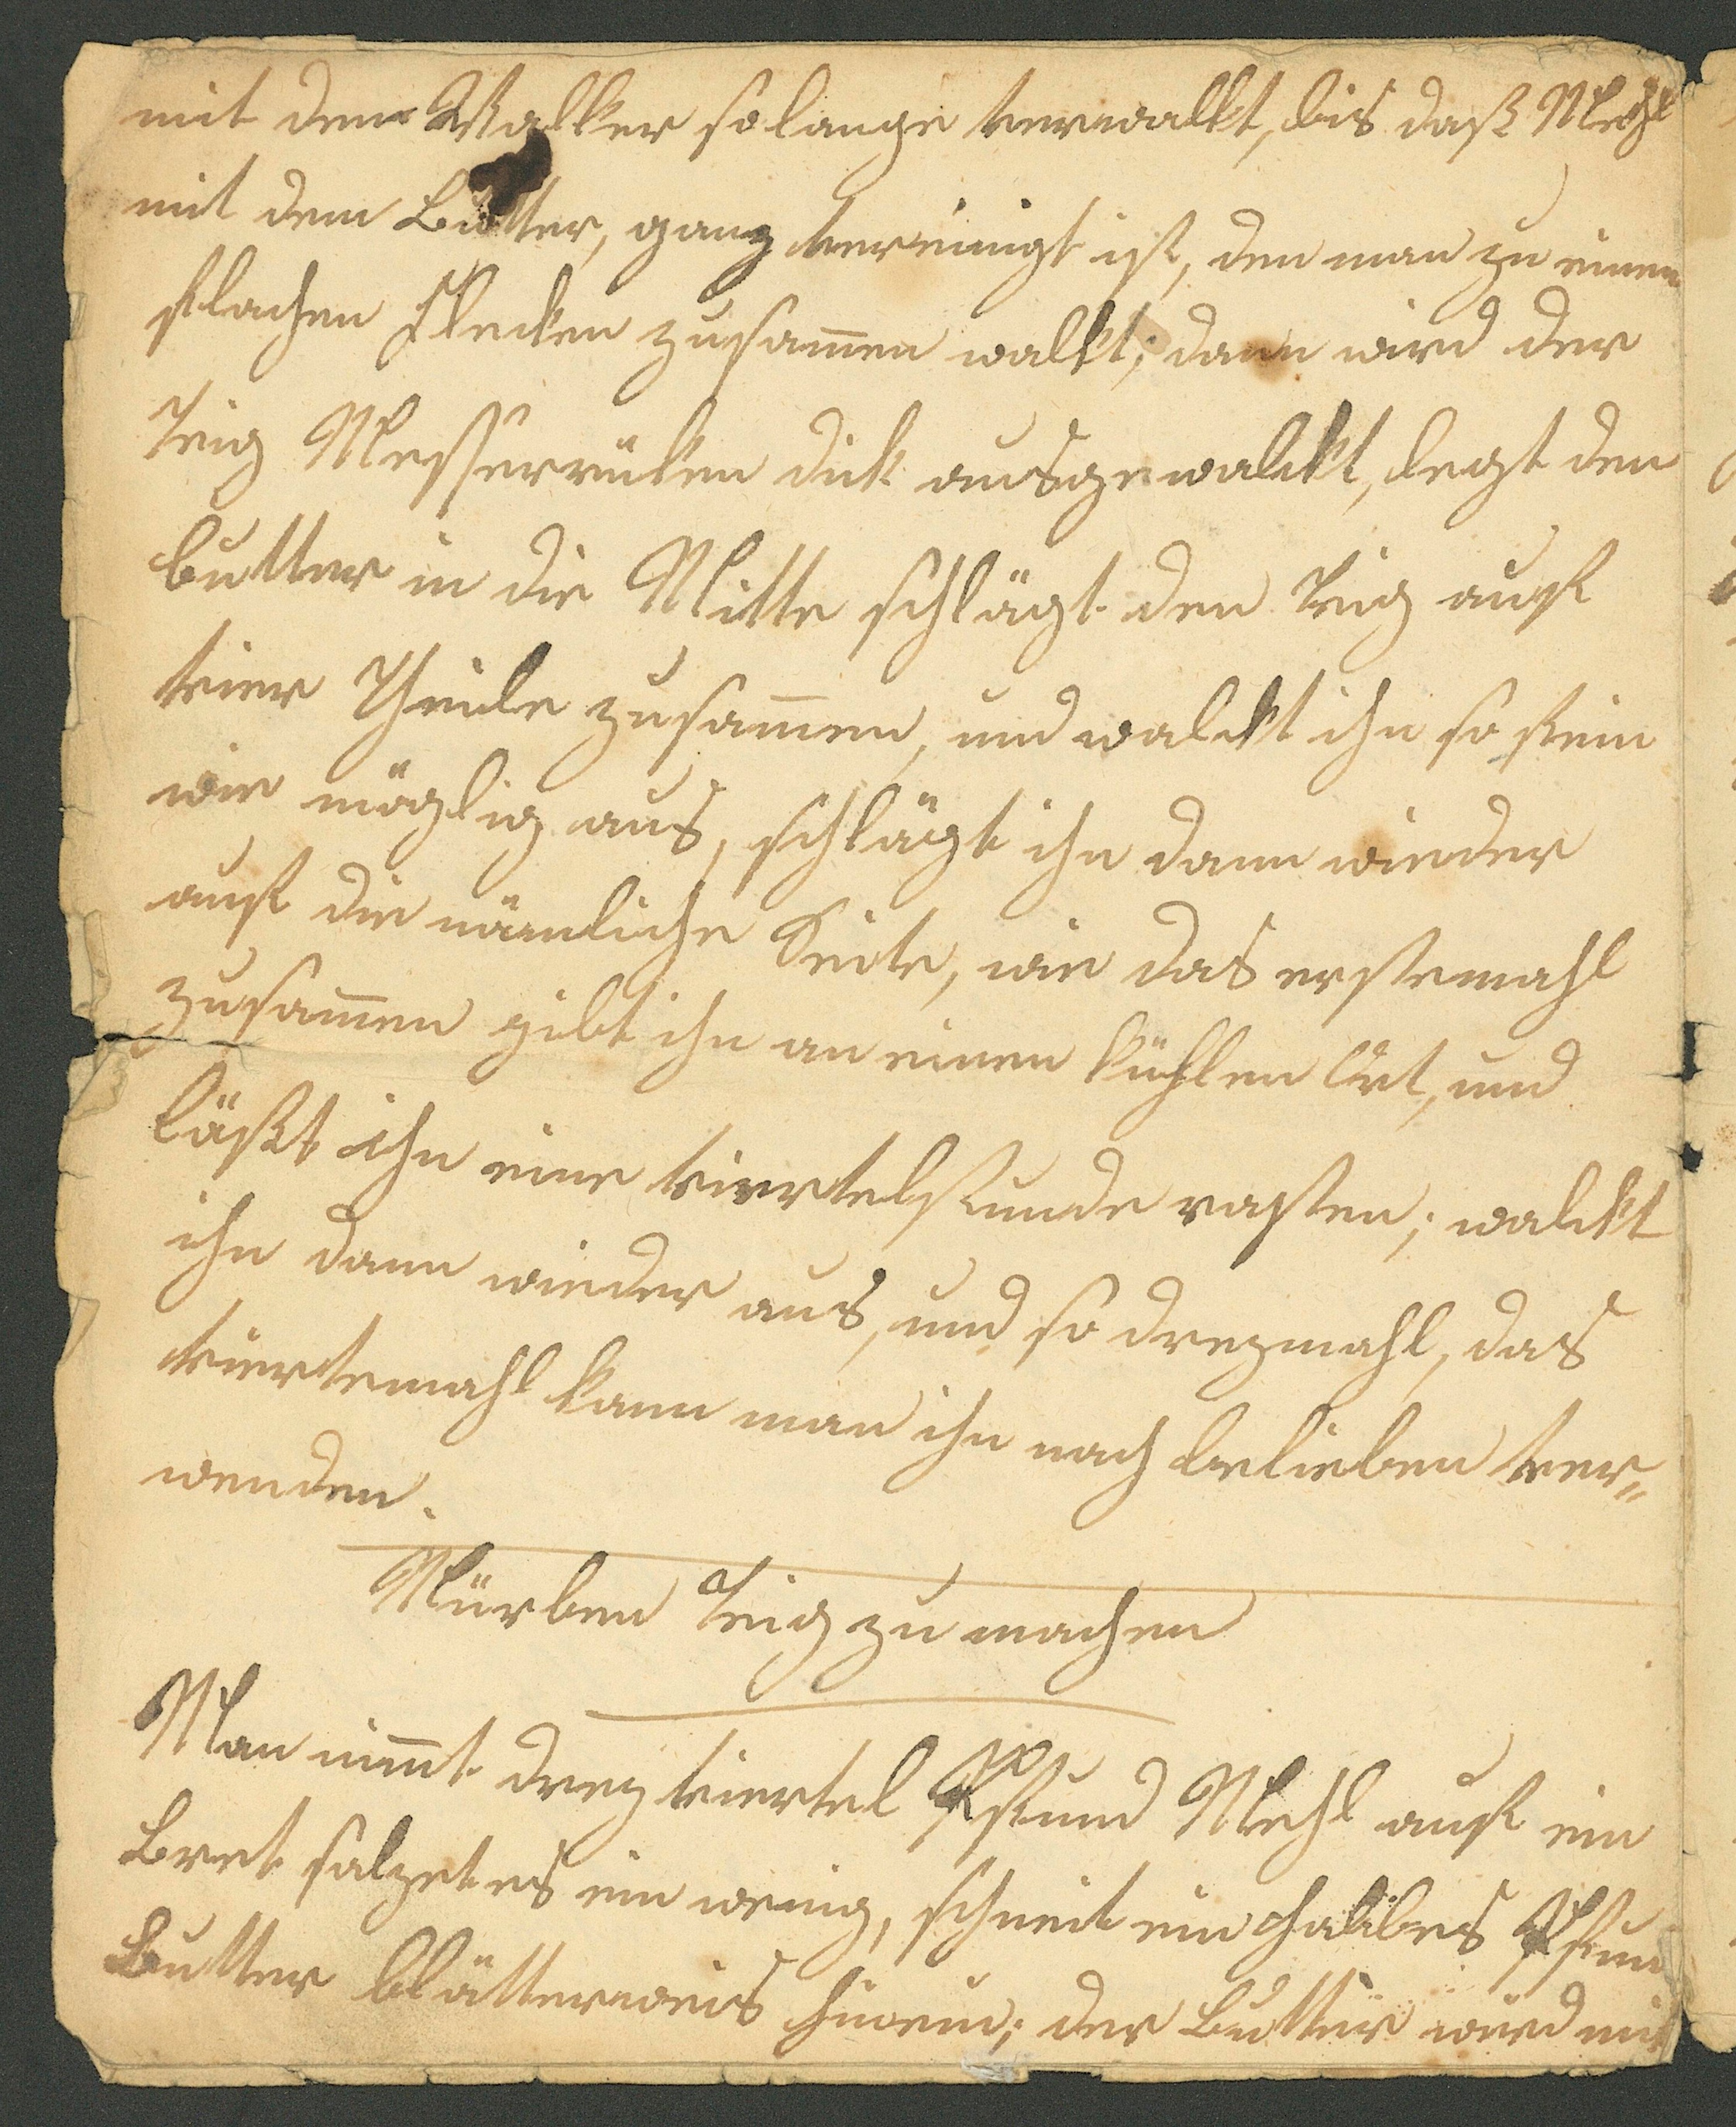 mit dem Walker solange verwalkt, bis daß Mehl
mit dem Butter, ganz vereinigt ist, den man zu einen
flachen Flecken zusam̄en walkt; dann wird der
Teig Messerrüken dick ausgewalckt, legt den
butter in die Mitte schlägt den Teig auf
vier Theile zusam̄en, und walckt ihn so fein
wie möglig aus, schlägt ihn dann wieder
auf die nämliche Seite, wie das erstemahl
zusam̄en gibt ihn an einen kühlen Ort, und
läßt ihn eine viertelstunde rasten; walckt
ihn dann wieder aus, und so dreymahl, das
viertemahl kann man ihn nach belieben ver„
wenden.
Mürben Teig zu machen
Man nim̄t drey viertel Pfund Mehl auf ein
Bret salzet es ein wenig, schneit ein halbes Pfund
Butter blätterweis hinein; der Butter wird mit